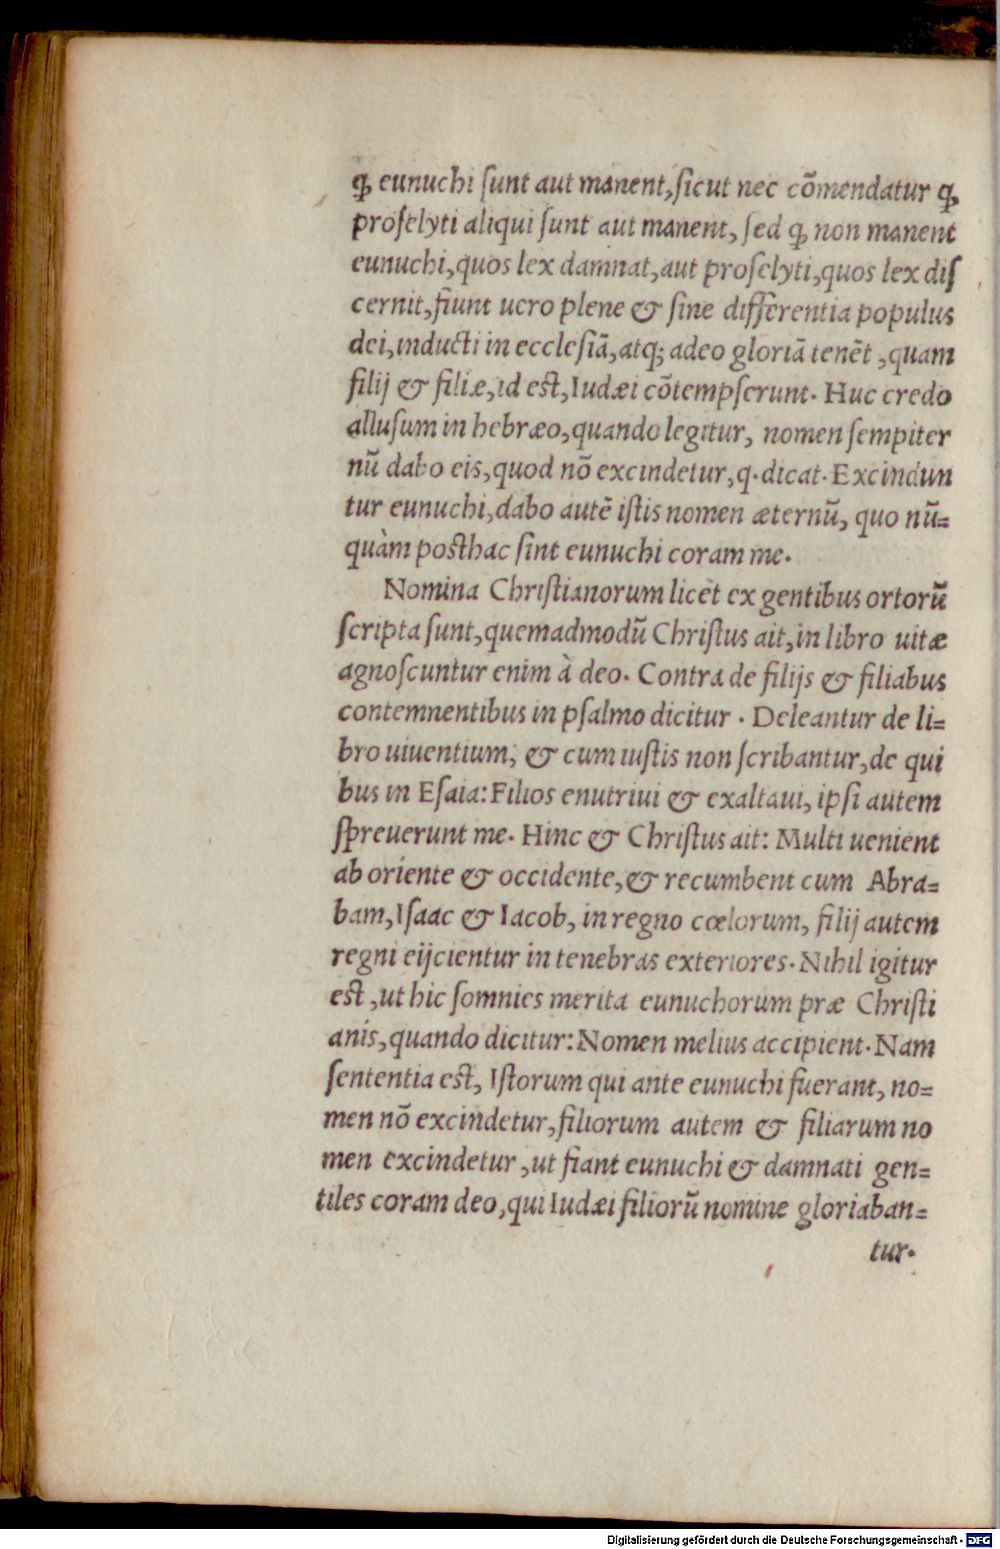 ꝙ eunuchi ſunt aut manent, ſicut nec cōmendatur ꝙ
proſelyti aliqui ſunt aut manent, ſed ꝙ non manent
eunuchi, quos lex damnat, aut proſelyti, quos lex diſ
cernit, fiunt uero plene & ſine differentia populus
dei, inducti in eccleſiā, atq; adeo gloriā tenēt, quam
filij & filiæ, id eſt, Iudæi cōtempſerunt. Huc credo
alluſum in hebræo, quando legitur, nomen ſempiter
nū dabo eis, quod nō excindetur, q. dicat. Excindun
tur eunuchi, dabo autē iſtis nomen æternū, quo nū=
quàm poſthac ſint eunuchi coram me.
Nomina Chriſtianorum licēt ex gentibus ortorū
ſcripta ſunt, quemadmodū Chriſtus ait, in libro uitæ
agnoſcuntur enim à deo. Contra de filijs & filiabus
contemnentibus in pſalmo dicitur. Deleantur de li=
bro uiuentium, & cum iuſtis non ſcribantur, de qui
bus in Eſaia: Filios enutriui & exaltaui, ipſi autem
ſpreuerunt me. Hinc & Chriſtus ait: Multi uenient
ab oriente & occidente, & recumbent cum Abra=
ham, Iſaac & Iacob, in regno cœlorum, filij autem
regni eijcientur in tenebras exteriores. Nihil igitur
eſt, ut hic ſomnies merita eunuchorum præ Chriſti
anis, quando dicitur: Nomen melius accipient. Nam
ſententia eſt, Iſtorum qui ante eunuchi fuerant, no=
men nō excindetur, filiorum autem & filiarum no
men excindetur, ut fiant eunuchi & damnati gen=
tiles coram deo, qui Iudæi filiorū nomine gloriaban=
tur.
Digitalisierung gefördert durch die Deutsche Forschungsgemeinschaft - DFG